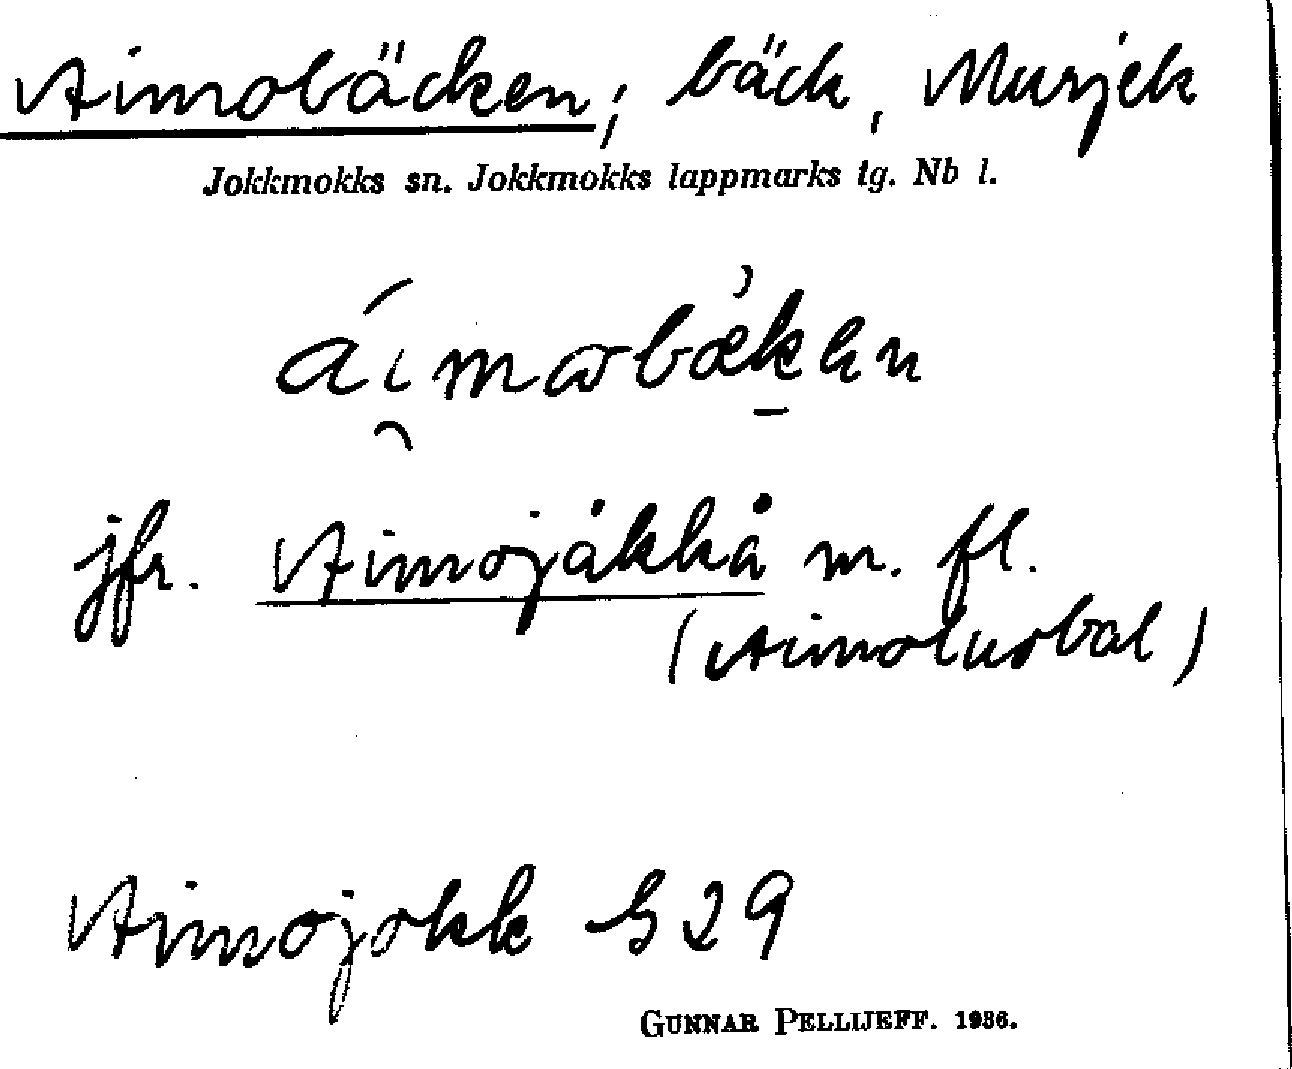 Aimobäcken, bäck, Murjek
Jokkmokks sn. Jokkmokks lappmarks tg. Nb l.
jfr. Aimojåkkå m. fl.
(Aimolusbal)
Aimojokk G29
GUNNAR PELLIJEFF. 1936.